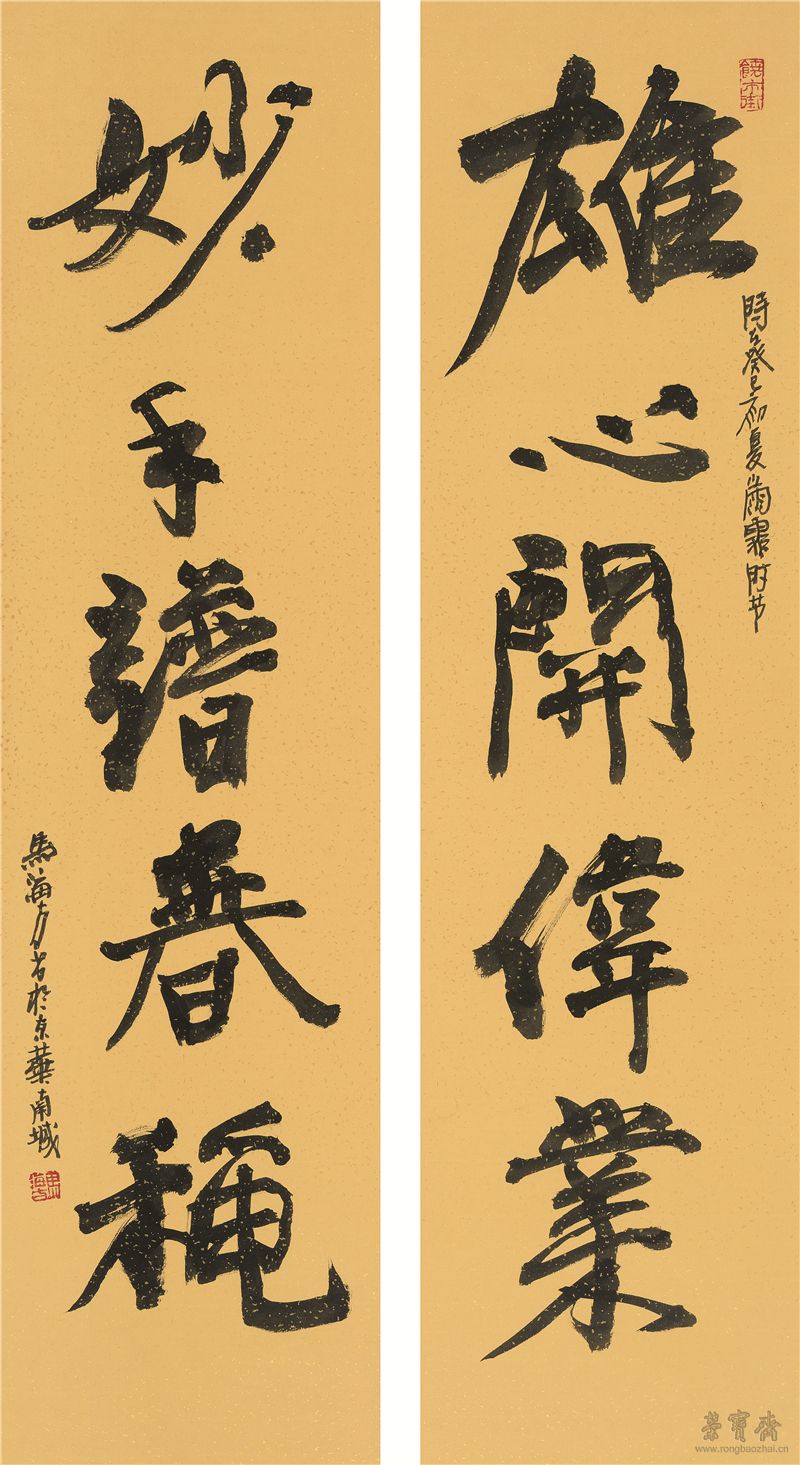 雄心開偉業
時在癸巳初夏时节
妙手譜春穐
馬海方書於京華南城
榮寶齋
www.rongbaozhai.cn